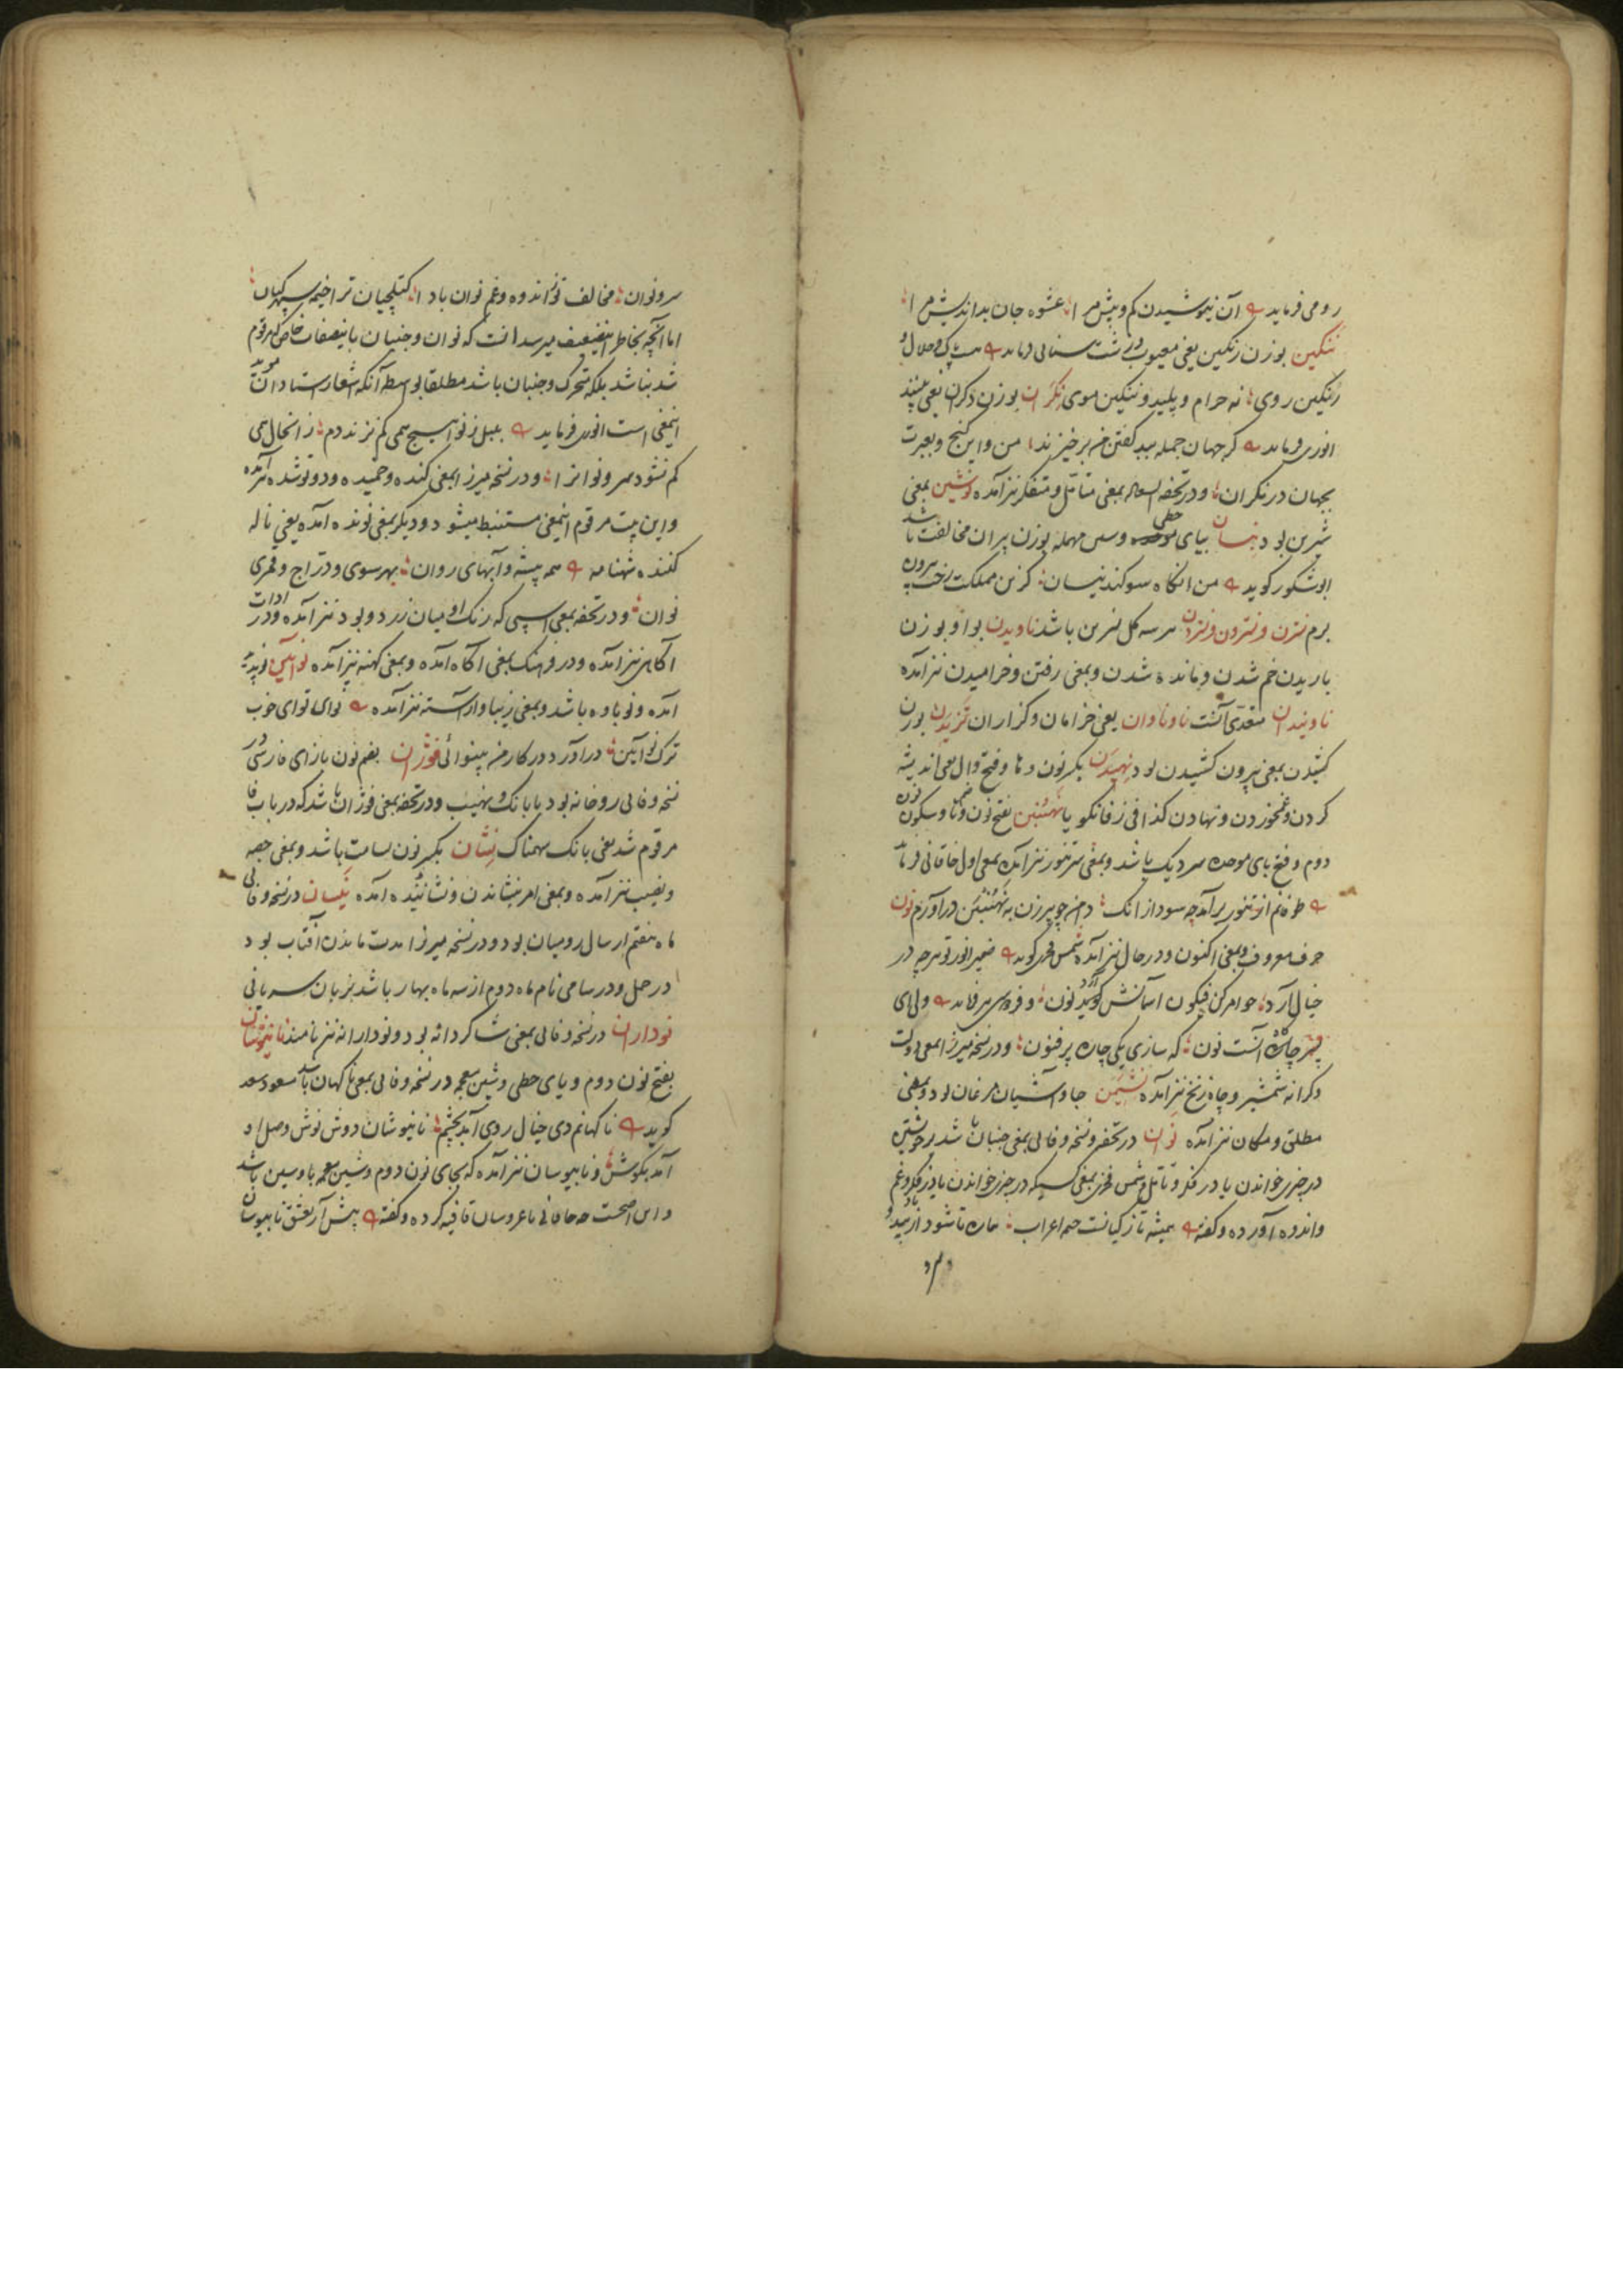 رومی فرماید آن نیوشیدن کم و بیش مرا عشوه جان بداندیش مرا
ننگین بوزن رنگین یعنی معیوب و زشت سنائی فرماید پاک و حلال و
رنگین روی نه حرام و پلید و ننگین موی نگران بوزن دگران یعنی بیننده
انوری فرماید گر جهان جمله ببد گفتن من برخیزند من و این کنج و بعبرت
بجهان در نگران و در تحفة السعاده بمعنی متأمل و متفکر نیز آمده نوشین بمعنی
شیرین بود نیسان بیای حطی و سین مهمله بوزن پیران مخالفت باشد
ابوشکور گوید من آنگاه سوگند نیسان کزین مملکت رخت بیرون
برم نسترن و نسترون و نستردن هر سه گل نسرین باشد ناویدن بواو بوزن
باریدن خم شدن و مانده شدن و بمعنی رفتن و خرامیدن نیز آمده
ناویندان متعدی آنست ناوناوان یعنی خرامان و گزاران نزیدن بوزن
کشیدن بمعنی بیرون کشیدن بود نهیدن بکسر نون و ها و فتح دال بمعنی اندیشه
کردن و غمخوردن و نهادن کذا فی زفانگویا نهنبن بفتح نون و ها و سکون نون
دوم و فتح بای موحده سر دیگ باشد و بمعنی سر تنور نیز آمده بمعنی اول خاقانی فرماید
طوفانم از تنور برآمد چه سود از آنک دامن چو پیرزن به نهنبن درآورم نون
حرف معروف و بمعنی اکنون و در حال نیز آمده شمس فخری گوید ضمیر انور تو هرچه در
خیال آرد هوا مر کن فیکون آسمانش گوید نون و فردوسی فرماید ولی ای
پسر چاره آنست نون که سازی یکی چاره پر فنون و در نسخه میرزا بمعنی دولت
و کرانه شمشیر و چاه زنخ نیز آمده نشیمن جا و آشیان مرغان بود و بمعنی
مطلق و مکان نیز آمده نوان در تحفه و نسخه وفائی بمعنی جنبان باشد بر خویشتن
در چیزی خواندن یا در فکر و تأمل و شمس فخری بمعنی کسیکه در چیزی خواندن یا در فکر و غم
و اندوه آورده و گفته همیشه تا ز کیانست خیمه اعراب تا شود از بید باد
سرو
سرو نوان مخالف تو از اندوه و غم نوان بادا کتلچیان ترا خیمه سپهر کیان
اما آنچه بخاطر این ضعیف میرسد آنست که نوان و جنبان باینصفات خاص که مرقوم
شد نباشد بلکه متحرک و جنبان باشد مطلقا بواسطه آنکه اشعار استادان مؤید
اینمعنی است انوری فرماید بلبل ز نوا هیچ همی کم نزند دم زانحال همی
کم نشود سرو نوانرا و در نسخه میرزا بمعنی کنده و خمیده و دوتو شده نیز آمده
و این بیت مرقوم اینمعنی مستنبط میشود و دیگر بمعنی نونده آمده یعنی ناله
کننده شهنامه همه بیشه و آبهای روان بهر سوی و دراج و قمری
نوان و در تحفه بمعنی اسپی که رنگ او میان زرد و بور بود نیز آمده و در ادات
آگاهی نیز آمده و در فرهنگ بمعنی آگاه آمده و بمعنی کهنه نیز آمده نوآئین نو پدید
آمده و نوباوه باشد و بمعنی زیبا و آراسته نیز آمده نوای تو ای خوب
ترک نوآیین درآورد در کار من بینوائی نوژان بضم نون بازای فارسی در
نسخه وفائی رودخانه بود با بانگ و نهیب و در تحفه بمعنی فوژان باشد که در باب فا
مرقوم شد یعنی بانک سهمناک نشان بکسر نون سامت باشد و بمعنی حصه
و نصیب نیز آمده و بمعنی امر بنشاندن و نشاننده آمده نیسان در نسخه وفائی
ماه هفتم از سال رومیان بود و در نسخه میرزا مدت ماندن آفتاب بود
در حمل و در سامی نام ماه دوم از سه ماه بهار باشد بزبان سریانی
نوداران در نسخه وفائی بمعنی شاگردانه بود و نودارانه نیز نامند نانیوشان
بفتح نون دوم و یای حطی و شین معجمه در نسخه وفائی بمعنی ناگهان باشد مسعود سعد
گوید ناگهانم دی خیال روی آمد بچشم نانیوشان دوش نوش وصل او
آمد بگوش و نابیوسان نیز آمده که بجای نون دوم و شین معجمه با و سین باشد
و این اصحست چه خاقانی با عروسان قافیه کرده و گفته پیش آر بعشق نابیوسان